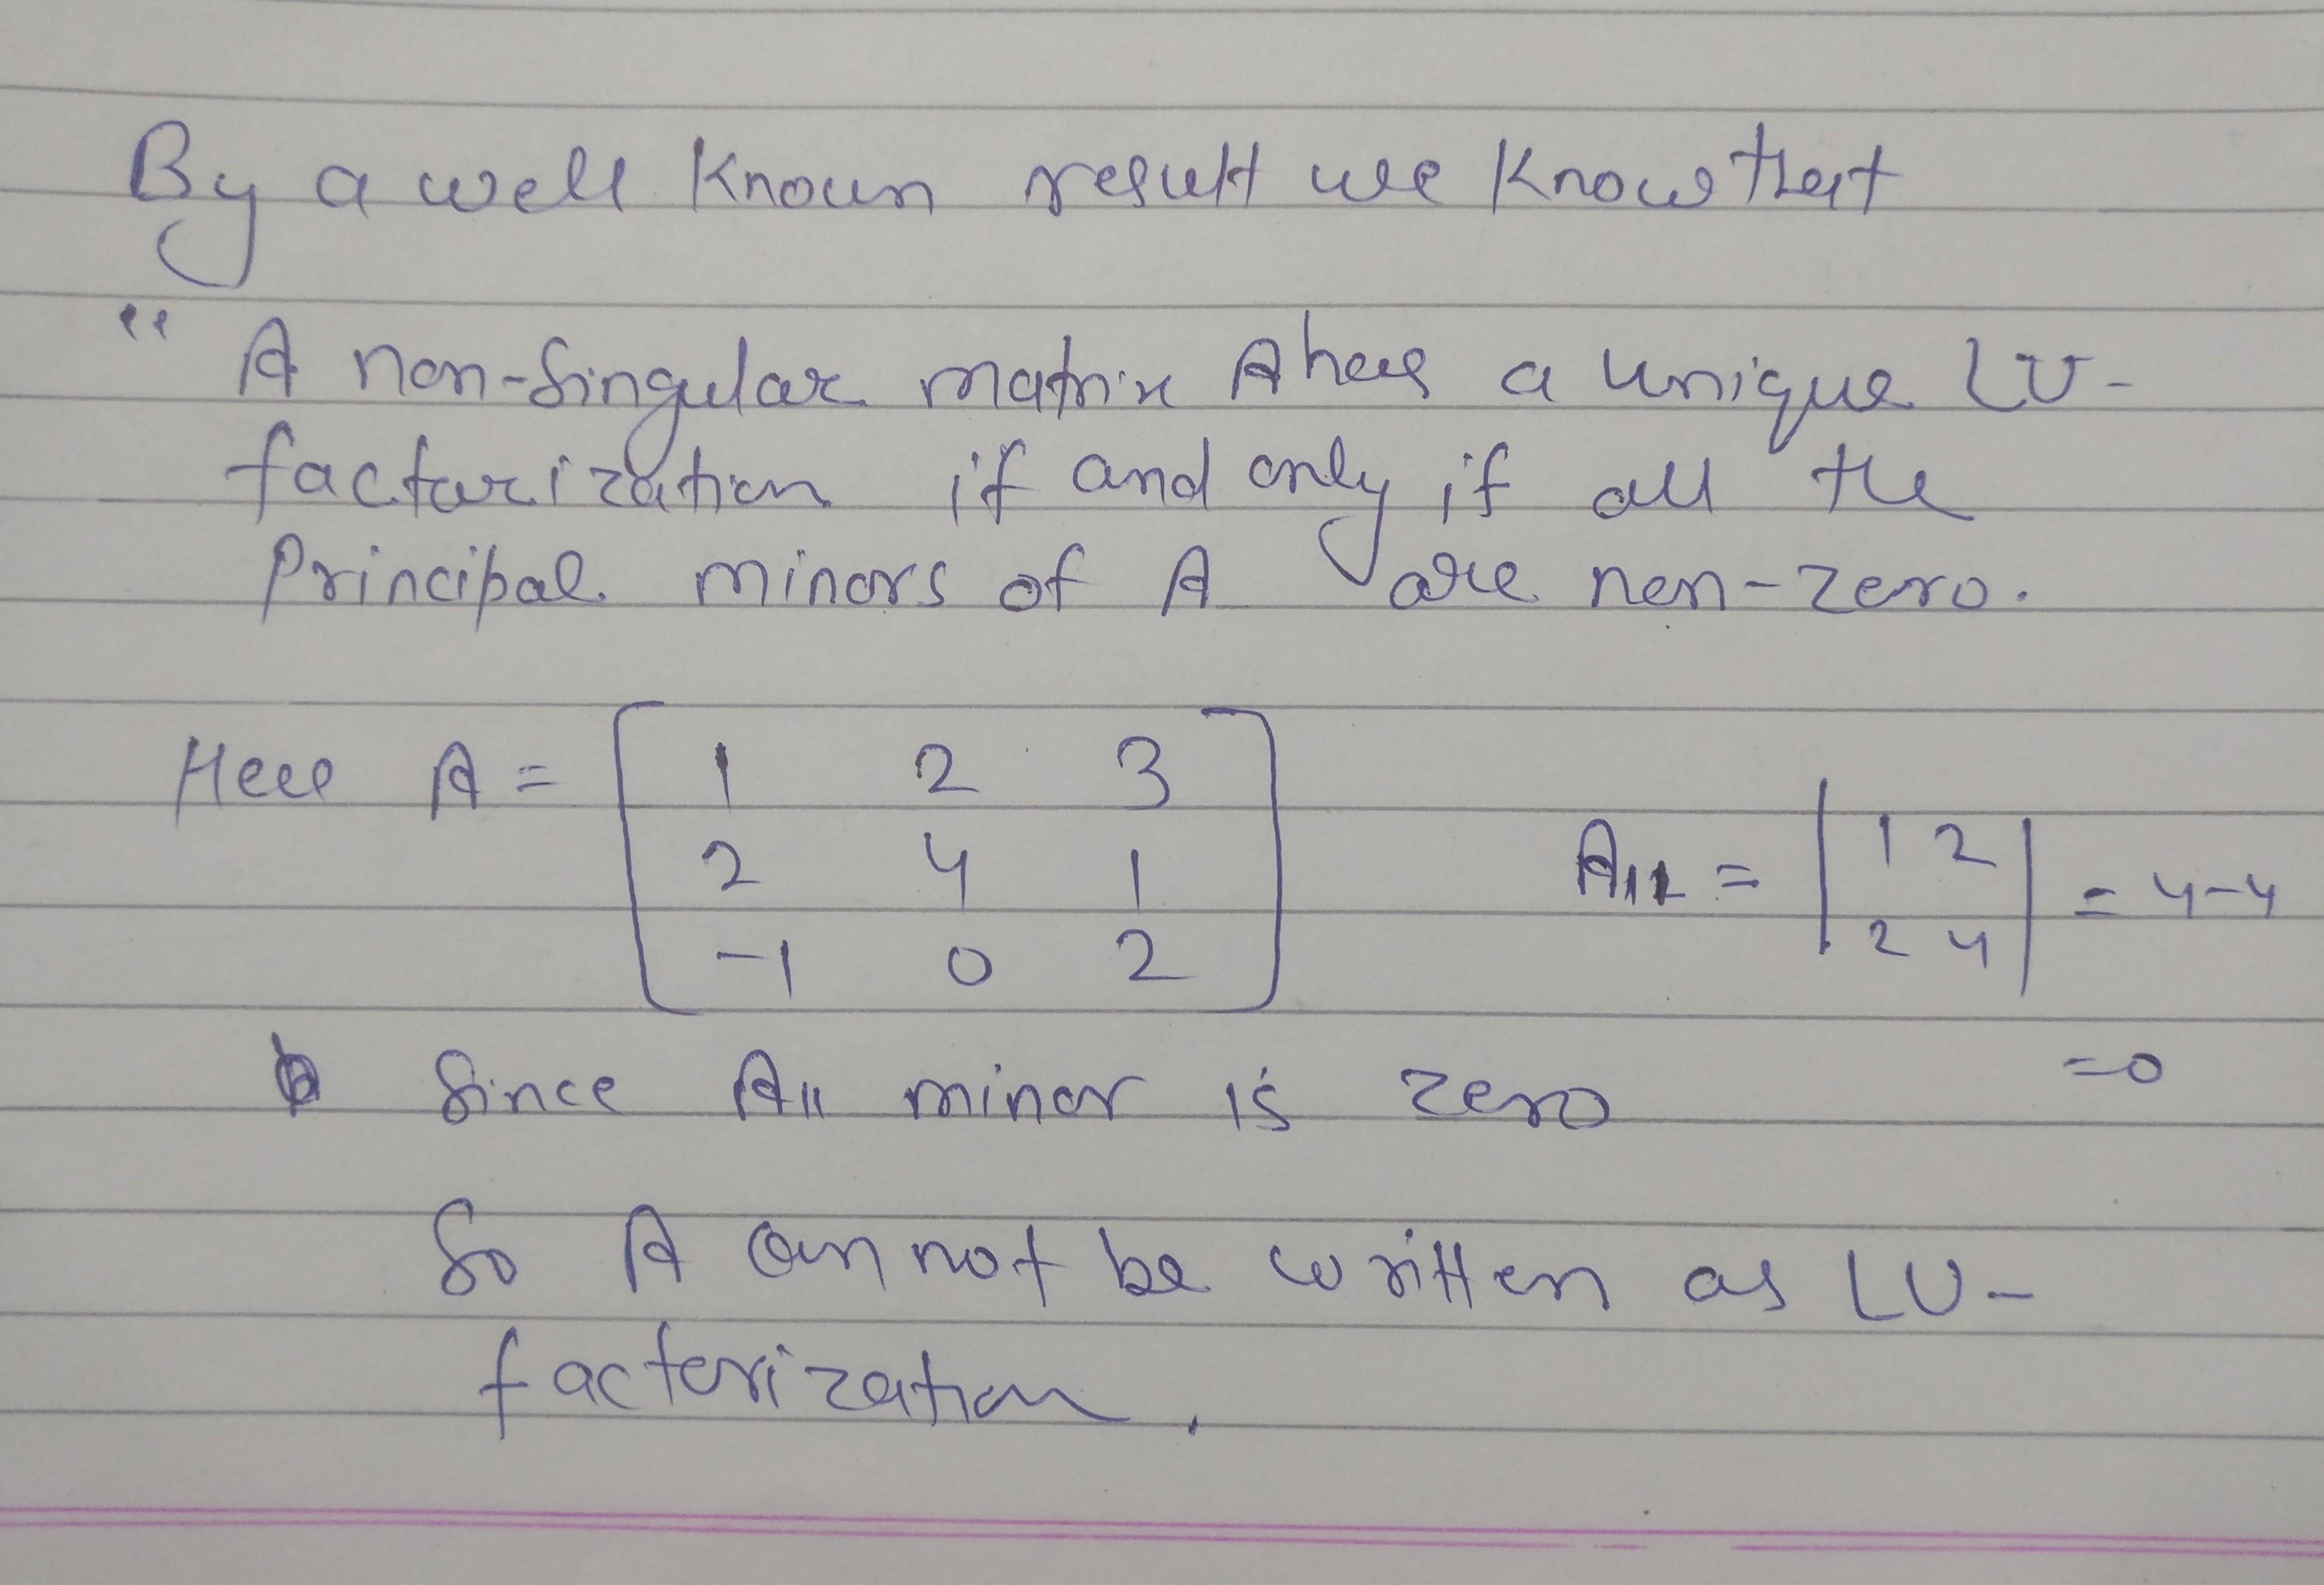 By a well known result we know that
" A non-singular matrix A has a unique LU-
factorization if and only if all the
Principal minors of A are non-zero.
Here A = [ 1 2 3
2 4 1
-1 0 2 ]
A₁₂ = | 1 2
2 4 | = 4-4
= 0
Since A₁₁ minor is zero
So A can not be written as LU-
factorization.